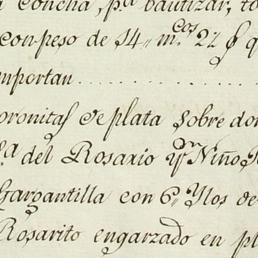 Concha, p.a bautizar, to
con peso de 14,, m.cos 2½ ȣ q
importan..............
oronitas de plata sobre do
S.a del Rosario y Niño
Gargantilla con 6,, Ylos de
Rosarito engarzado en pl